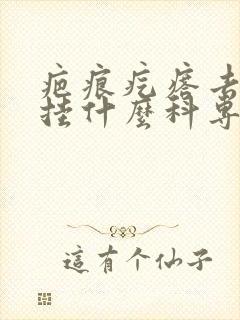 疤痕疙瘩去
挂什麼科專
這有个仙子